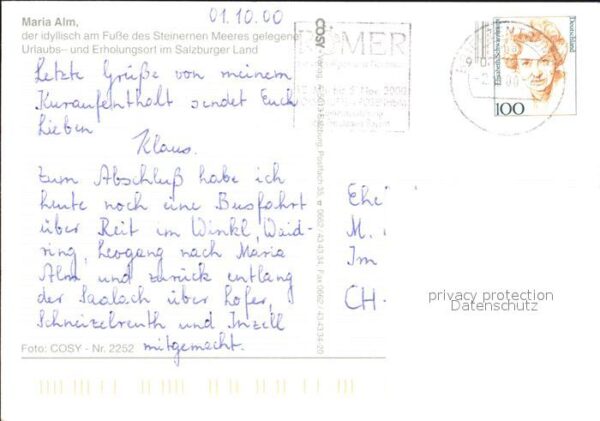 Maria Alm,
der idyllisch am Fuße des Steinernen Meeres gelegene
Urlaubs- und Erholungsort im Salzburger Land
01.10.00
Letzte Grüße von meinem
Kuraufenthalt sendet Euch
Lieben
Klaus.
Zum Abschluß habe ich
heute noch eine Busfahrt
über Reit im Winkl, Waid-
ring, Leogang nach Maria
Alm und zurück entlang
der Saalach über Lofer,
Schneizelreuth und Inzell
mitgemacht.
Foto: COSY - Nr. 2252
COSY Verlag
Postfach 35
Nov. 2000
Deutschland
Elisabeth Schwarzhaupt
100
M.
Im
CH-
privacy protection
Datenschutz